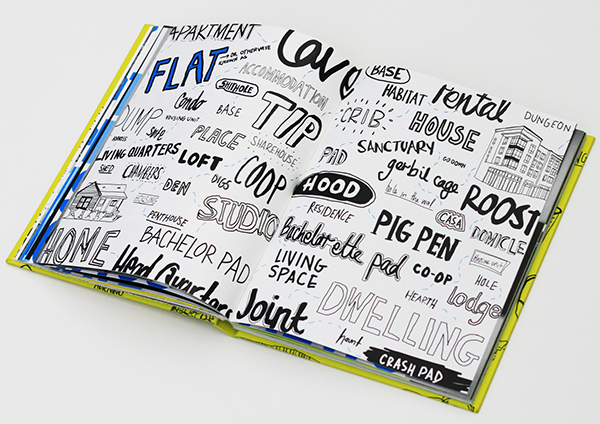 APARTMENT
FLAT
→ OR OTHERWISE KNOWN AS
ACCOMMODATION
SHITHOLE
Condo
HOUSING UNIT
BASE
TIP
DUMP
PLACE
SHAREHOUSE
LIVING QUARTERS
LOFT
SHED
CHAMBERS
DEN
DIGS
COOP
PENTHOUSE
STUDIO
HOME
BACHELOR PAD
Head Quarters
Joint
Cave
BASE
HABITAT
rental
CRIB
HOUSE
DUNGEON
SANCTUARY
PAD
gerbil cage
CONDOMN
HOOD
hole in the wall
ROOST
RESIDENCE
PIG PEN
CASA
DOMICILE
Bachelorette pad
HOUSING UNIT
LIVING SPACE
CO-OP
HOLE
HEARTH
lodge
DWELLING
haunt
CRASH PAD